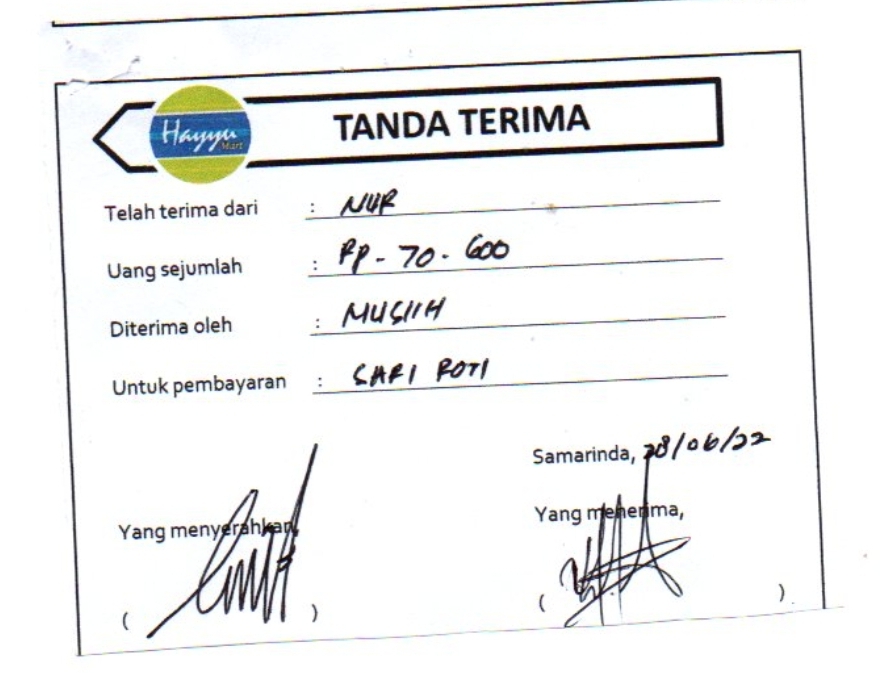 Hayyu
Mart
TANDA TERIMA
Telah terima dari : NUR
Uang sejumlah : Rp - 70 - 600
Diterima oleh : MUSIIH
Untuk pembayaran : SARI ROTI
Samarinda, 28/06/22
Yang menyerahkan,
Yang menerima,
( )
( )